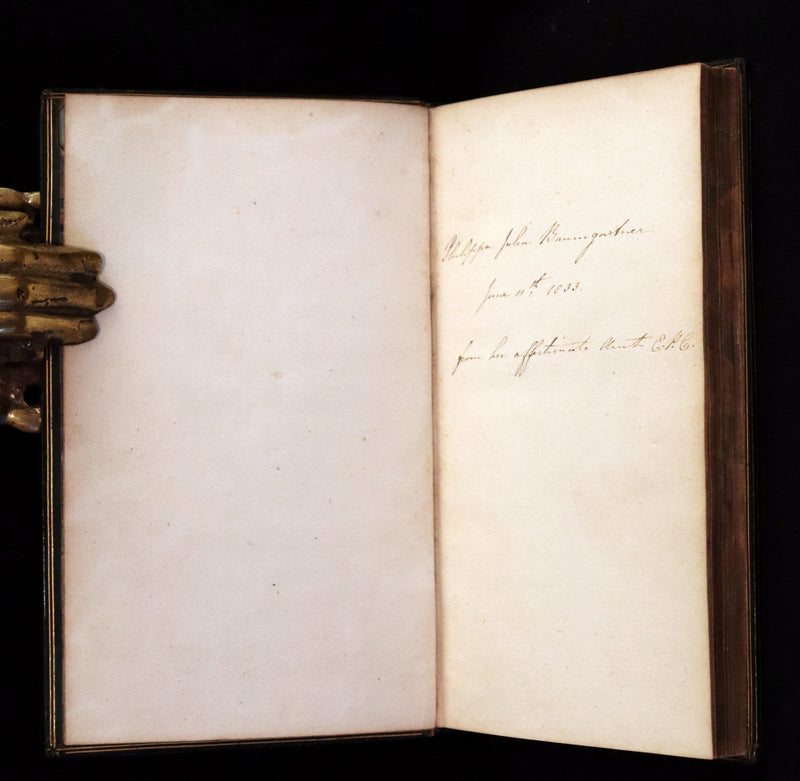 Philippa Julia Baumgartner
June 11th. 1833.
from her affectionate Aunt E.P.C.